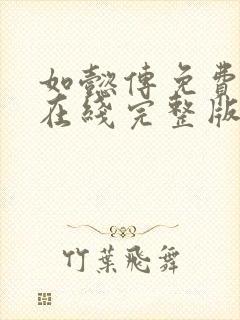 如懿傳免費
在綫完整版
竹葉飛舞